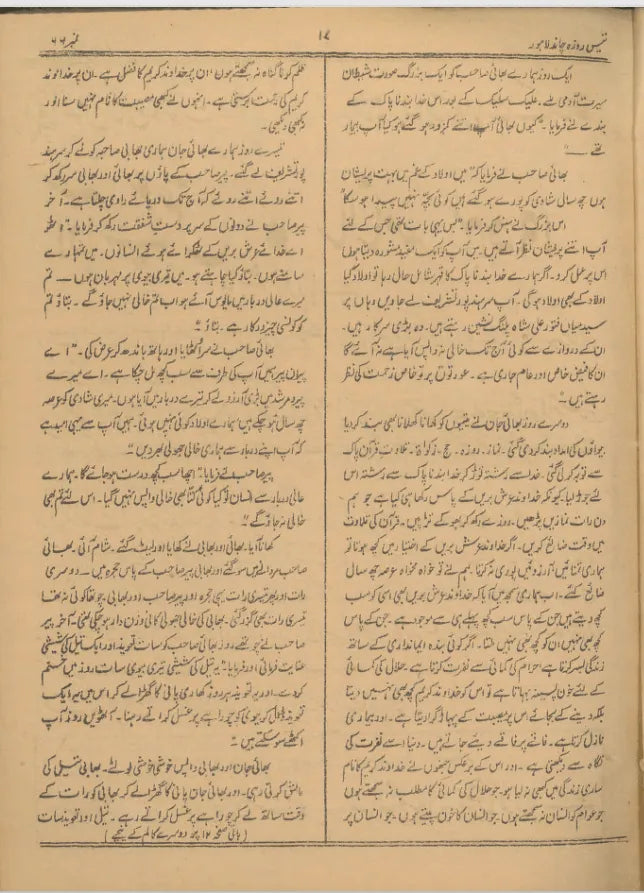 تیس روزہ چاند لاہور
۱۷
نمبر ۶۶
ایک روز ہمارے بھائی صاحب کو ایک بزرگ صورت شیطان
سیرت آدمی ملے۔ علیک سلیک کے بعد اس خدا بند ناپاک کے
بندے نے فرمایا۔ "کیوں بھائی آپ اتنے کمزور ہو گئے ہو کیا آپ بیمار
تھے ——"
بھائی صاحب نے فرمایا کہ میں اولاد کے غم میں بہت پریشان
ہوں چھ سال شادی کو پورے ہو گئے ہیں کوئی بچہ نہیں پیدا ہو سکا"
اس بزرگ نے ہنس کر فرمایا۔ "بس یہی بات تھی جس کے لئے
آپ اتنے پریشان نظر آتے ہیں۔ میں آپ کو ایک مفید مشورہ دیتا ہوں
اس پر عمل کرو۔ اگر ہمارے خدا بند ناپاک کا قہر شامل حال رہا تو اولاد کیا
اولاد کے بھی اولاد ہوگی۔ آپ سرہند پور تشریف لے جاویں وہاں پر
سید میاں فقور علی شاہ پلنگ نشین رہتے ہیں۔ وہ بڑی سرکار ہیں۔
ان کے دروازے سے کوئی آج تک خالی نہ واپس آیا ہے نہ آئے گا
ان کا فیض خاص اور عام جاری ہے۔ عورتوں پر تو خاص زحمت کی نظر
رہتے ہیں"
دوسرے روز بھائی جان نے یتیموں کو کھانا کھلانا بھی بند کر دیا
بیواؤں کی امداد بند کر دی گئی۔ نماز۔ روزہ۔ حج۔ زکواۃ۔ تلاوت قرآن پاک
سے توبہ کر لی گئی۔ خدا سے رشتہ توڑ کر خدا بند ناپاک سے رشتہ اس
لئے جوڑ لیا کیونکہ خداوند عرش بریں کے پاس رکھا ہی کیا ہے جو ہم
دن رات نمازیں پڑھیں۔ روزے رکھ کر بھوکے مریں۔ قرآن کی تلاوت
میں وقت ضائع کریں۔ اگر خداوند عرش بریں کے اختیار میں کچھ ہوتا تو
ہماری تمنائیں آرزوئیں پوری نہ کرتا۔ ہم نے تو خواہ مخواہ عرصہ چھ سال
ضائع کئے۔ اب ہماری سمجھ میں آیا کہ خداوند عرش بریں بھی اسی کو سب
کچھ دیتے ہیں جن کے پاس سب کچھ پہلے ہی سے موجود ہے۔ جن کے پاس
کچھ بھی نہیں ان کو کچھ بھی نہیں ملتا۔ اگر کوئی بندہ ایمانداری کے ساتھ
زندگی بسر کرتا ہے حرام کی کمائی سے نفرت کرتا ہے۔ حلال کی کمائی
کے لئے خون پسینہ بہاتا ہے تو اس کو خداوند کریم کچھ بھی نہیں دیتا
بلکہ دینے کے بجائے اس پر مصیبت کے پہاڑ گرا دیتا ہے۔ اور بیماری
نازل کرتا ہے۔ فاقے پر فاقے دیئے جاتے ہیں۔ دنیا اسے نفرت کی
نگاہ سے دیکھتی ہے۔ اور اس کے برعکس جنہوں نے خداوند کریم کا نام
ساری زندگی میں کبھی نہ لیا ہو۔ جو حلال کی کمائی کا مطلب نہ سمجھتے ہوں
جو عوام کو انسان نہ سمجھتے ہوں۔ جو انسان کا خون پیتے ہوں۔ جو انسان پر
ظلم کرنا گناہ نہ سمجھتے ہوں ان پر خداوند کریم کا فضل ہے۔ ان پر خداوند
کریم کی رحمت برستی ہے۔ انہوں نے کبھی مصیبت کا نام نہیں سنا اور
نہ کبھی دیکھی۔
تیسرے روز ہمارے بھائی جان ہماری بھابی صاحبہ کو لے کر سرہند
پور تشریف لے گئے۔ پیر صاحب کے پاؤں پر بھائی اور بھابی سر رکھ کر
اتنے روئے اتنے روئے کہ آج تک دریائے راوی چلتا ہے۔ آخر
پیر صاحب نے دونوں کے سر پر دست شفقت رکھ کر فرمایا۔ "اٹھو
اے خدائے عرش بریں کے ٹھکرائے ہوئے انسانوں۔ میں تمہارے
سامنے ہوں۔ بتاؤ کیا چاہتے ہو۔ میں تیری بیوی پر مہربان ہوں — تم
میرے عالی دربار میں مایوس آئے ہو اب تم خالی نہیں جاؤ گے۔ بتاؤ تم
کو کونسی چیز درکار ہے۔ بتاؤ"
بھائی صاحب نے سر اٹھایا اور ہاتھ باندھ کر عرض کی۔ "اے
پیران پیر ہمیں آپ کی طرف سے سب کچھ مل چکا ہے۔ اے میرے
پیر و مرشد میں بڑی آرزو لے کر تیرے دربار میں آیا ہوں۔ میری شادی کو عرصہ
چھ سال ہو چکے ہیں ہمارے اولاد کوئی نہیں ہوئی۔ ہمیں آپ سے یہی امید ہے
کہ آپ اپنے دربار سے ہماری خالی جھولی بھر دیں"
پیر صاحب نے فرمایا "اچھا سب کچھ درست ہو جائے گا۔ ہمارے
عالی دربار سے انسان تو کیا کوئی کتا بھی خالی واپس نہیں گیا۔ اس لئے تم بھی
خالی نہ جاؤ گے"
کھانا آیا۔ بھائی اور بھابی نے کھایا اور لیٹ گئے۔ شام آئی۔ بھائی
صاحب مردانے میں سو گئے اور بھابی پیر صاحب کے پاس حجرہ میں۔ دوسری
رات اور پھر تیسری رات یہی حجرہ اور پیر صاحب اور بھابی۔ چوتھا کوئی نہ تھا
تیسری رات بھی گزر گئی۔ بھابی کی خالی جھولی کافی وزن دار ہو چکی تھی۔ آخر پیر
صاحب نے چوتھے روز بھائی صاحب کو سات تعویذ اور ایک تیل کی شیشی
عنایت فرمائی اور فرمایا "یہ تیل کی شیشی تیری بیوی سات روز میں ختم
کر دے۔ اور یہ تعویذ ہر روز کھاری پانی کا گھڑا لے کر اس میں یہ ایک
تعویذ ڈال کر بیوی کو چوراہے پر غسل کراتے رہنا۔ آٹھویں روز آپ
اکٹھے سو سکتے ہیں"
بھائی جان اور بھابی واپس خوشی خوشی لوٹے۔ بھابی تیل کی
مالش کرتی رہی۔ اور بھائی جان پانی کا گھڑا لے کر بھابی کو رات کے
وقت ساتھ لے کر چوراہے پر غسل کراتے رہے۔ تیل اور تعویذ سات
(باقی صفحہ ۱۲ پر دوسرے کالم کے نیچے)